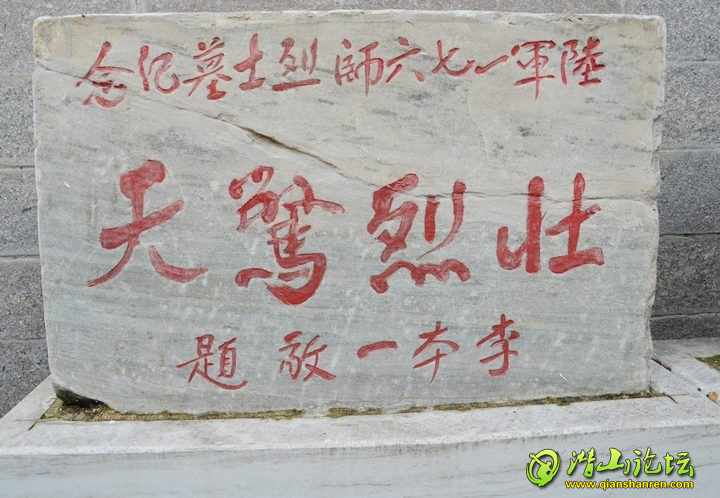 陸軍一七六師烈士墓紀念
壯烈驚天
李本一敬題
潜山论坛
www.qianshanren.com